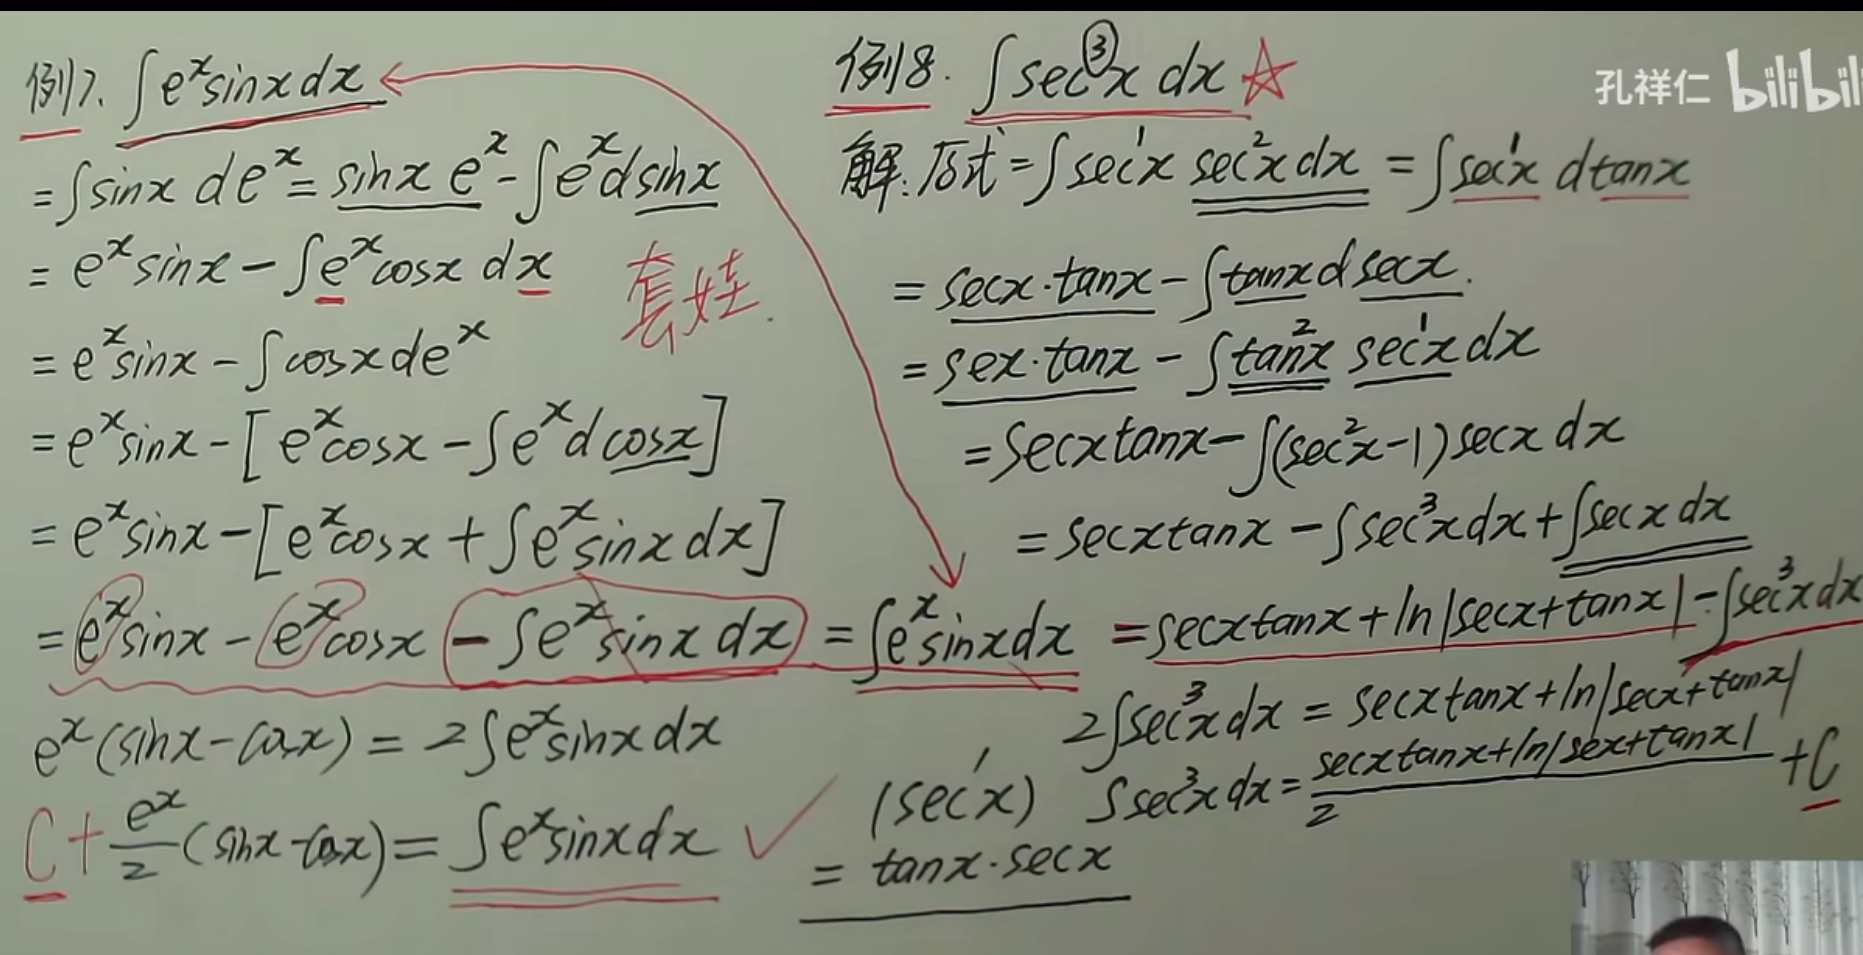 例7. ∫eˣsinxdx
=∫sinx deˣ=sinx eˣ-∫eˣdsinx
=eˣsinx-∫eˣcosx dx
套娃.
=eˣsinx-∫cosxdeˣ
=eˣsinx-[eˣcosx-∫eˣdcosx]
=eˣsinx-[eˣcosx+∫eˣsinxdx]
=eˣsinx-eˣcosx-∫eˣsinxdx=∫eˣsinxdx
eˣ(sinx-cosx)=2∫eˣsinxdx
C+eˣ/2(sinx-cosx)=∫eˣsinxdx ✓
例8. ∫sec③x dx ☆
解:原式=∫sec¹x sec²xdx=∫sec¹x dtanx
=secx·tanx-∫tanxdsecx.
=sex·tanx-∫tan²x sec¹xdx
=secxtanx-∫(sec²x-1)secxdx
=secxtanx-∫sec³xdx+∫secxdx
=secxtanx+ln|secx+tanx|-∫sec³xdx
2∫sec³xdx=secxtanx+ln|secx+tanx|
∫sec³xdx=secxtanx+ln|sex+tanx|/2+C
(sec'x)
=tanx·secx
孔祥仁 bilibili